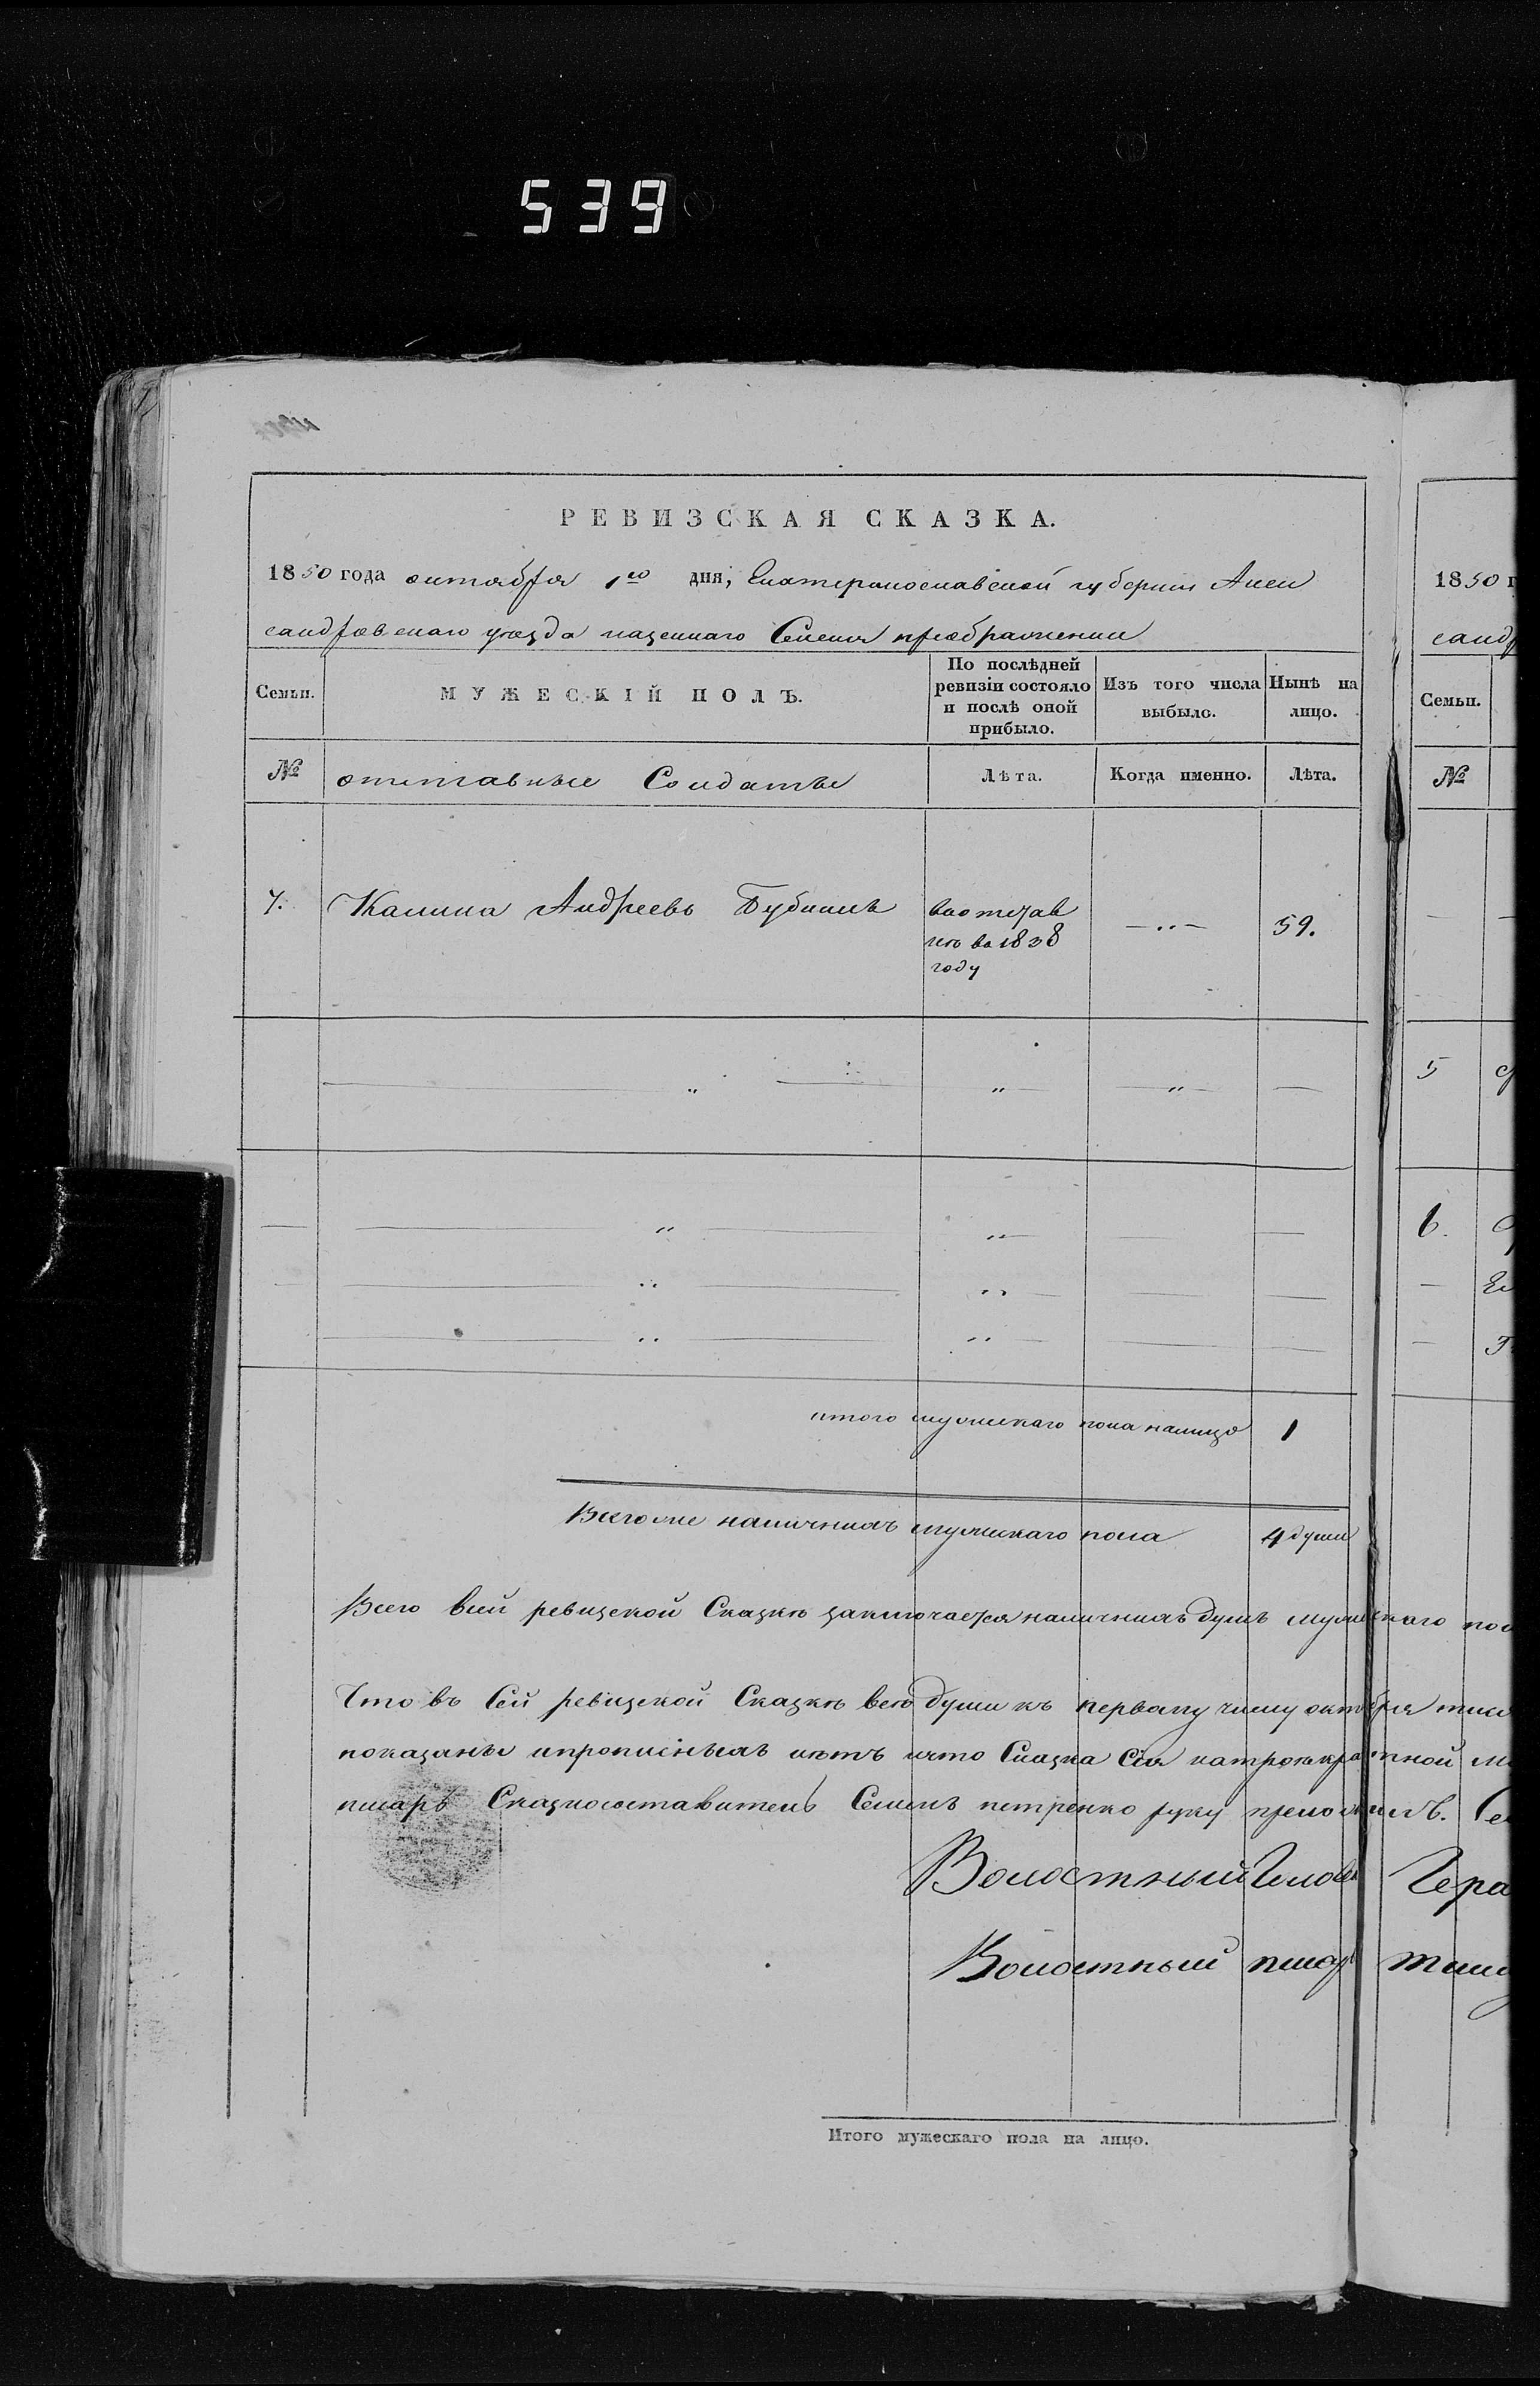 539
РЕВИЗСКАЯ СКАЗКА.
1850 года октября 1го дня, Екатеринославской губерніи Алек
сандровскаго уезда казеннаго Селения преображенки
Семьи. МУЖЕСКІЙ ПОЛЪ. По послѣдней ревизіи состояло и послѣ оной прибыло. Изъ того числа выбыло. Нынѣ на лицо.
№ отставные Солдаты Лѣта. Когда именно. Лѣта.
7. Калина Андреевъ Бубликъ вотстав
ке въ 1838 59.
году
итого мужскаго пола налицо 1
Всегоже наличныхъ мужскаго пола 4 души
Всего всей ревизской Сказке заключается наличныхъ душъ мужскаго пол
Что въ Сей ревизской Сказке все души къ первому числу октября
показаны ипрописныхъ нетъ ичто Сказка Сия натрехкратной
писарь Сказкосоставитель Семенъ петренко руку приложилъ.
Волостный Голова Гера
Волостный писарь
Итого мужескаго пола на лицо.
1850 г
санд
Семьи.
№
5
6.